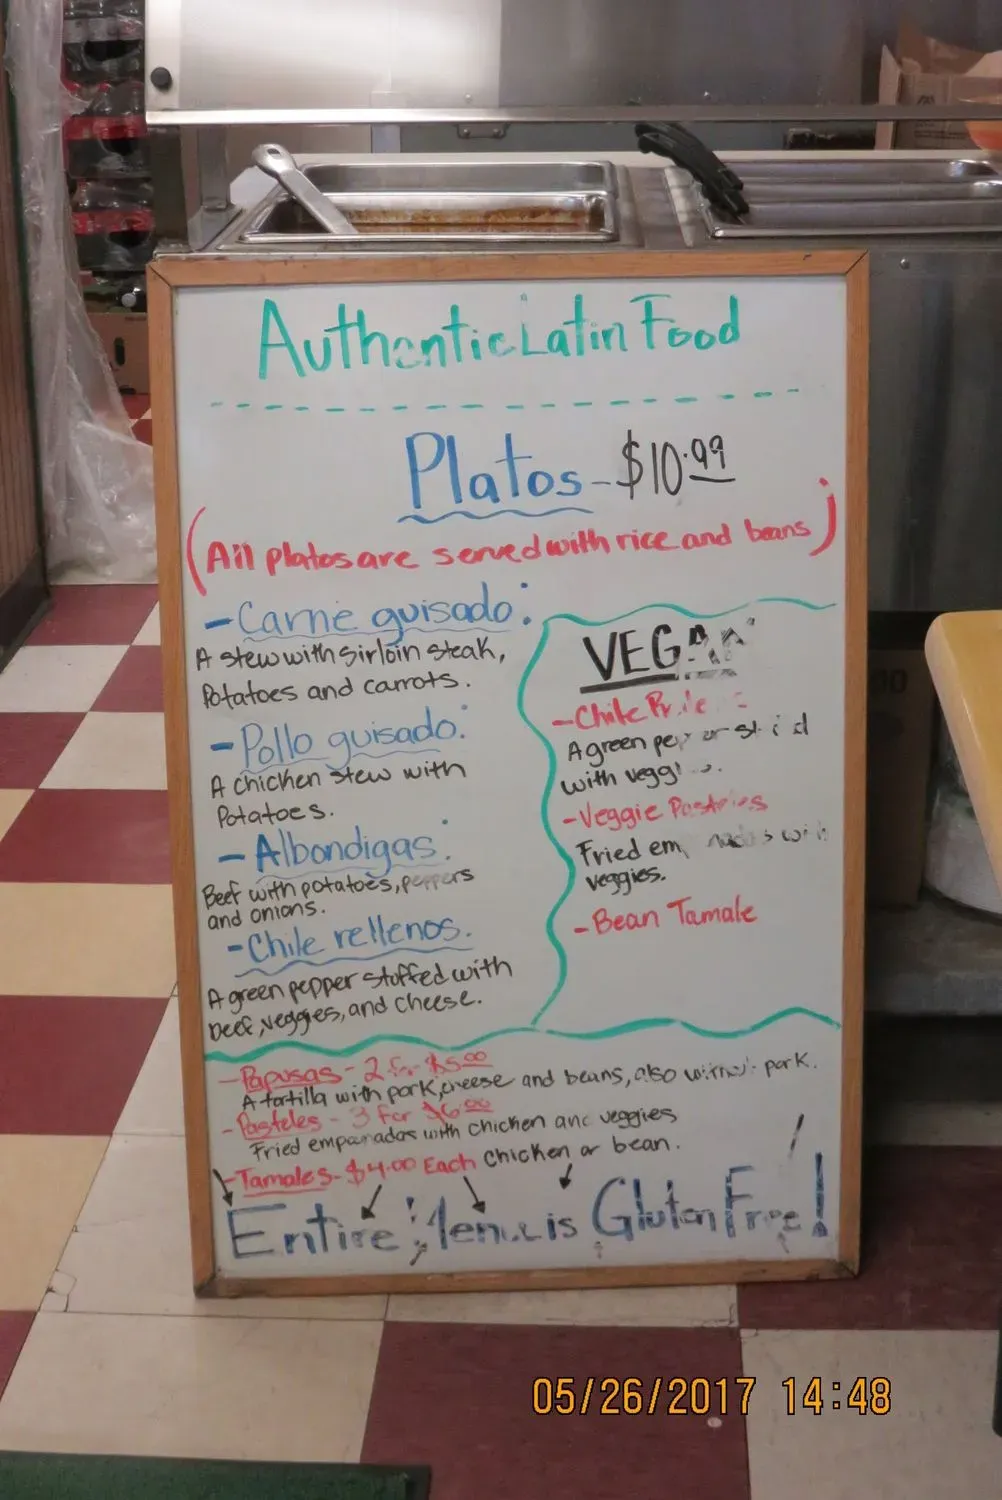 Authentic Latin Food
Platos - $10.99
(All platos are served with rice and beans)
- Carne guisado:
A stew with sirloin steak,
Potatoes and carrots.
- Pollo guisado:
A chicken stew with
Potatoes.
- Albondigas:
Beef with potatoes, peppers
and onions.
- Chile rellenos.
A green pepper stuffed with
beef, veggies, and cheese.
VEGAN
- Chile
A green
with
- Veggie Pasteles
Fried
veggies.
- Bean Tamale
- Papusas - 2 for $5.00
A tortilla with pork, cheese and beans, also without pork.
- Pasteles - 3 for $6.00
Fried empanadas with chicken and veggies
- Tamales - $4.00 Each chicken or bean.
Entire Menu is Gluten Free!
05/26/2017 14:48